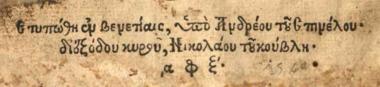 Ετυπώθη ἐν Βενετίαις, ὑπὸ Ἀνδρέου τοῦ Σπινέλου·
διεξόδου κυροῦ, Νικολάου τοῦ κούβλη·
α φ ξ·